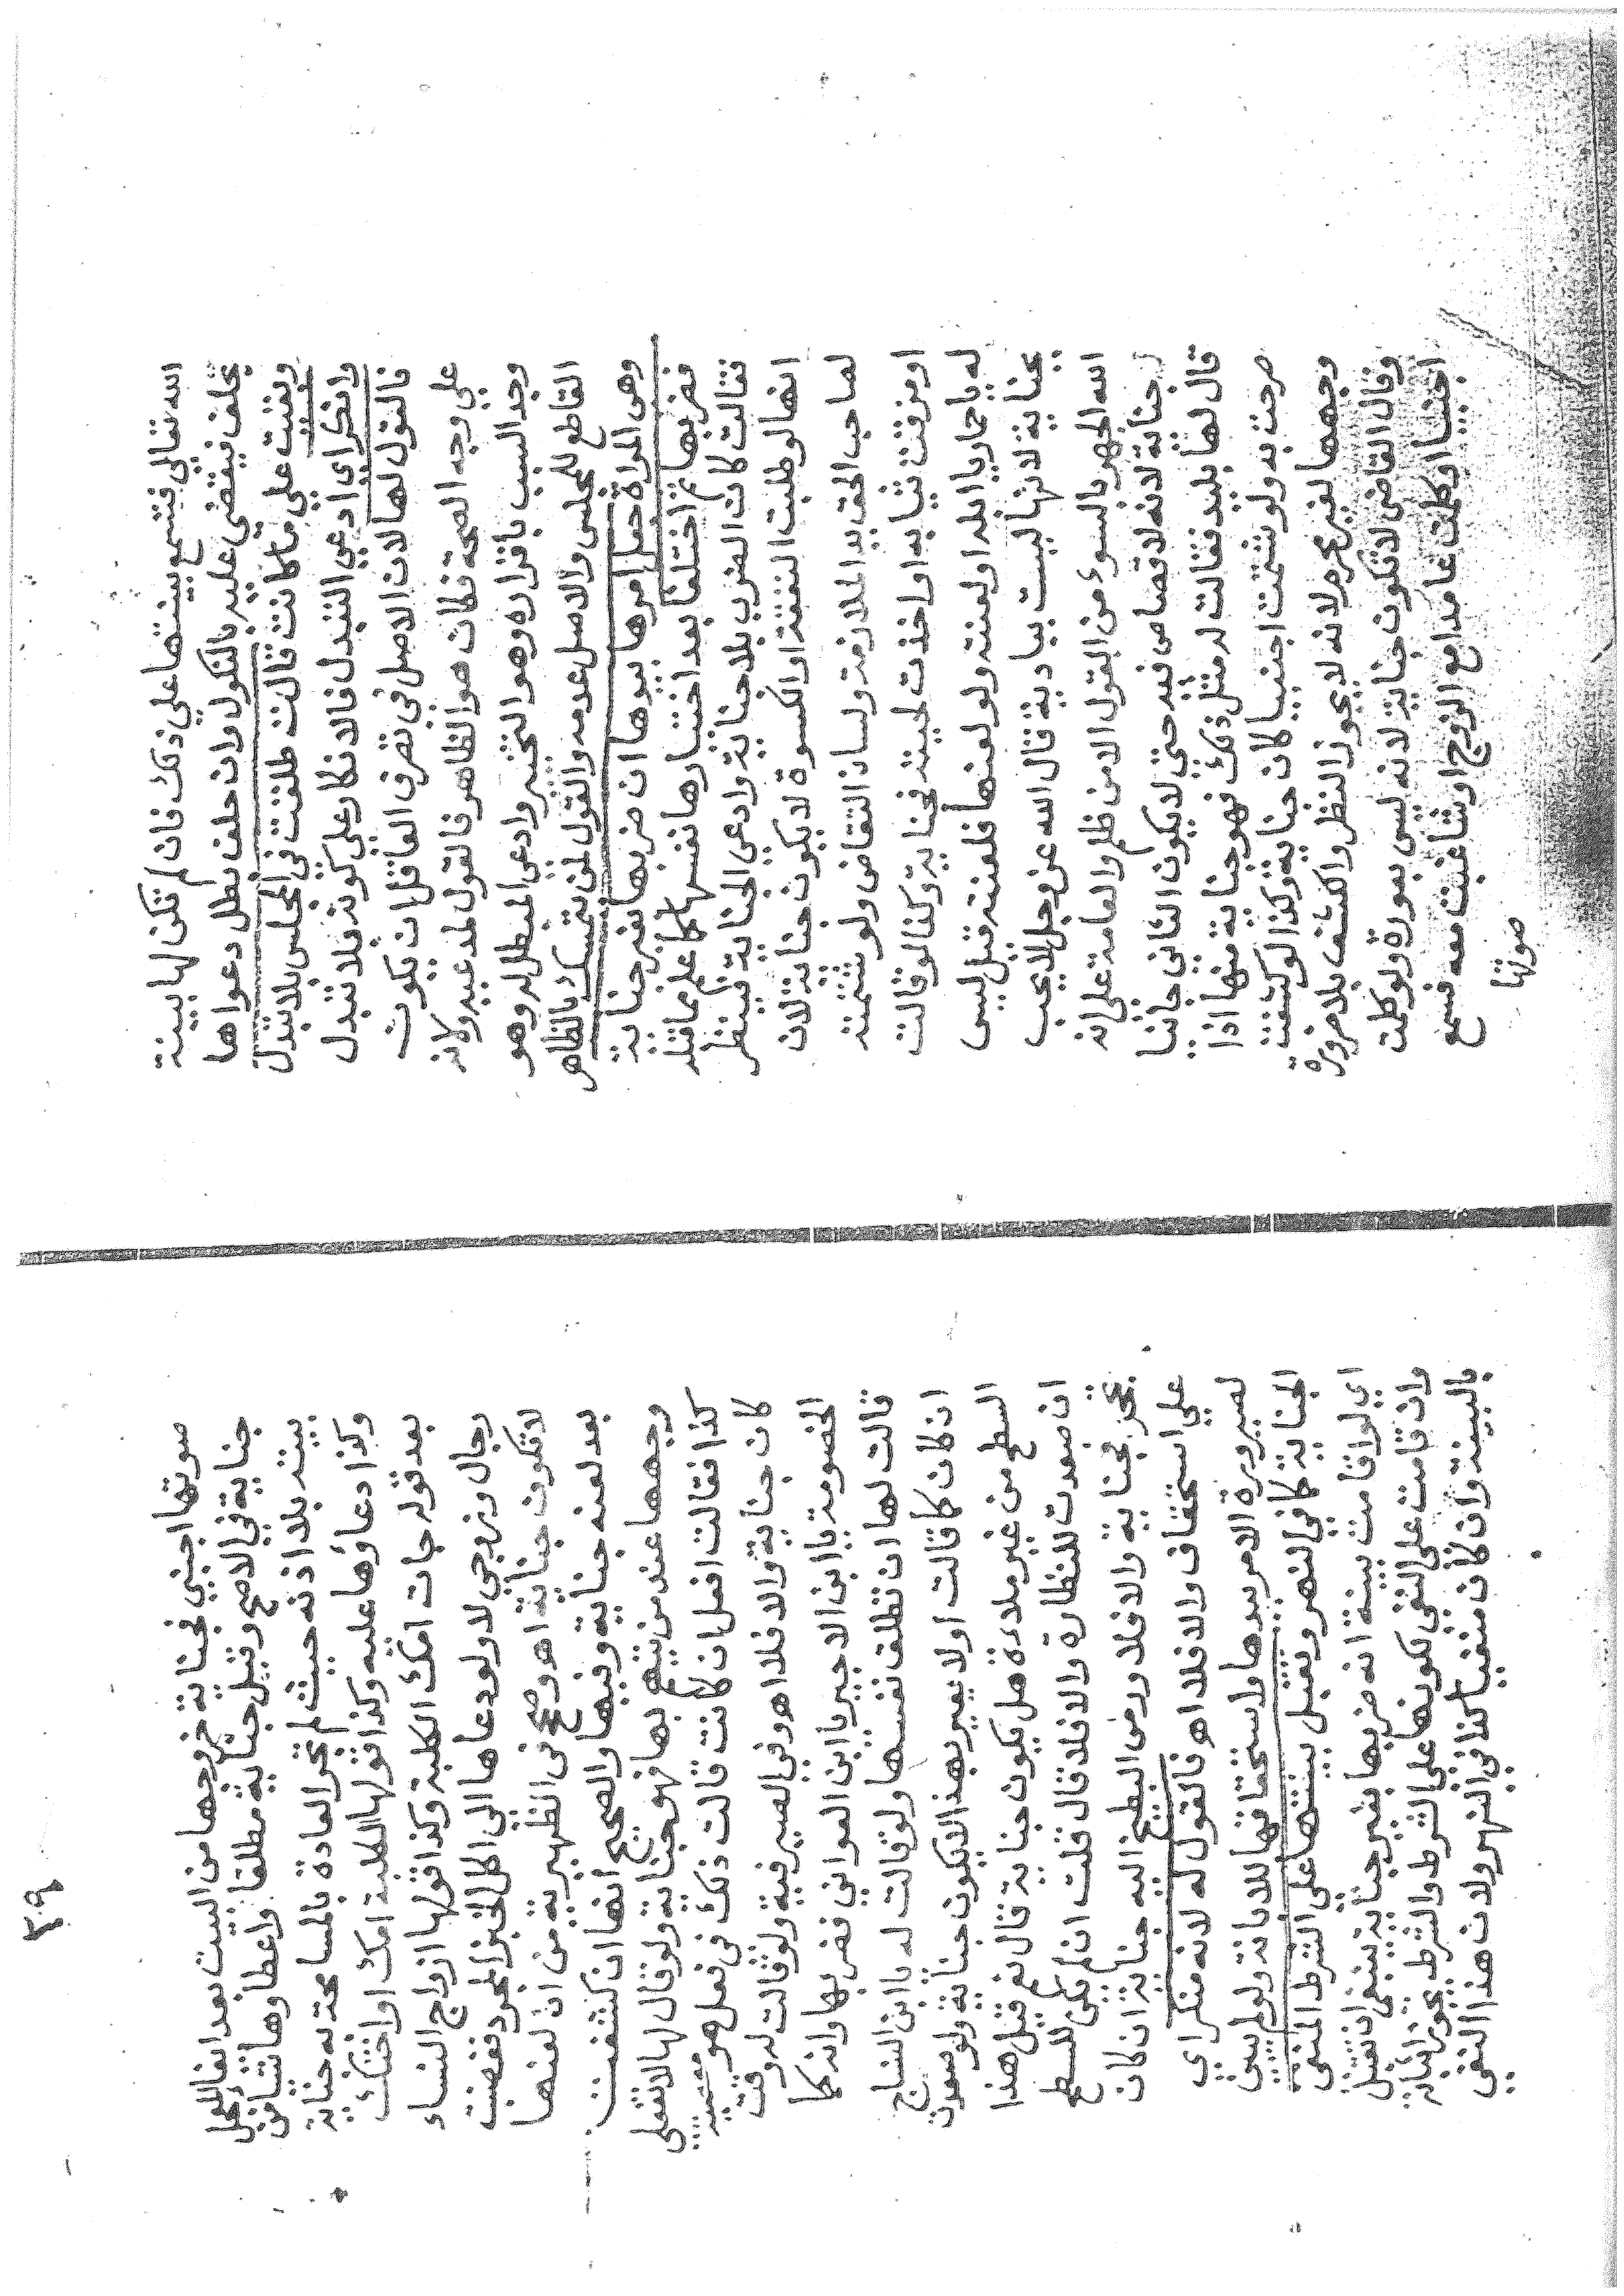 الله تعالى فتسمع بينتها علي ذلك فان لم تكن لها بينة
يحلف فيقضي عليه بالنكول وان حلف بطل دعواها
وبقيت علي ما كانت قالت طلقت في المجلس بلا تبدل
وانكر اي ادعي التبدل فالانكار علي كونه بلا تبدل
فالقول لها لان الاصل في تصرف العاقل ان يكون
علي وجه الصحة فكان هو الظاهر فالقول لمدعيه ولانه
وجد السبب باقراره وهو التخيير وادعى المبطل له وهو
القاطع للمجلس والاصل عدمه والقول لمن يتمسك بالظاهر
وهي المراة جعل امرها بيدها ان ضربها بغير جناية
فضربها ثم اختلفا بعد اختيارها نفسها كما علم مما قبله
فقالت كان الضرب بلا جناية وادعي الجناية فينظر
انها لو طلبت النفقة او الكسوة لا يكون جناية لان
لصاحب الحق يد الملازمة ولسان التقاضي ولو شتمته
او مزقت ثيابه او اخذت لحيته فجناية وكذا لو قالت
له يا حمار يا ابله او لعنته ولو لعنها فلعنته قيل ليس
بجناية لانها ليست ببادية قال الله عز وجل لا يحب
الله الجهر بالسوء من القول الا من ظلم والعامة علي انه
جناية لانه لا قصاص فيه حتى لا يكون الثاني جانيا
قال لها بليد فقالت له مثل ذلك فهو جناية منها اذا
صرحت به ولو شتمت اجنبيا كان جناية وكذا لو كشفت
وجهها لغير محرم لانه لا يجوز النظر والكشف بلا ضرورة
وقال القاضي لا تكون جناية لانه ليس بعورة ولو كلمت
اجنبيا او كلمت عامدا مع الزوج او شاغبت معه فسمع
صوتها
٣٩
صوتها اجنبي فجناية خروجها من البيت بعد ايفا المعجل
جناية في الاصح وقيل جناية مطلقا واعطاوها شيا من
بيته بلا اذنه حيث لم تجر العادة بالمسامحة به جناية
وكذا دعاؤها عليه وكذا قولها الكلبة امك او اختك
بعد قوله جات امك الكلبة وكذا قولها ازواج النساء
رجال وزوجي لا ولو دعاها الى اكل الخبز المجرد فغضبت
لا تكون جناية اهو وصحح في الظهيرية من ان لعنها
بعد لعنه جناية وفيها والصحيح انها ان كشفت
وجهها عند من يتهم بها فهو جناية ولو قال لها لا تفعلي
كذا فقالت افعل ان كانت قالت ذلك في فعل هو معصية
كان جناية والا فلا اهو وفي الصيرفية ولو قالت له وقت
الخصومة يا ابن الاجير يا ابن العواني فضربها وانه كما
قالت لها ان تطلق نفسها ولو قالت له يا ابن النساج
ان كان كما قالت او لا يعير بهذا لا يكون جناية ولو صعدت
السطح من غير ملاءة هل يكون جناية قال نعم قيل هذا
ان صعدت للنظارة والا فلا قال قلت ان لم يكن للسطح
تحجز فجناية والا فلا ورمي البطيخ اليه جناية ان كان
علي استخفاف والا فلا اهو فالقول له لانه منكر اي
لصيرورة الامر بيدها واستحقاقها للابانة ولو لم يبين
الجناية كما في النهر وتقبل بينتها على الشرط المنفي
اي لو اقامت بينة انه ضربها بغير جناية ينبغي ان تقبل
وان قامت على النفي لكونها على الشرط والشرط يجوز اثباته
بالبينة وان كان منفيا كذا في النهر ولان هذا النفي